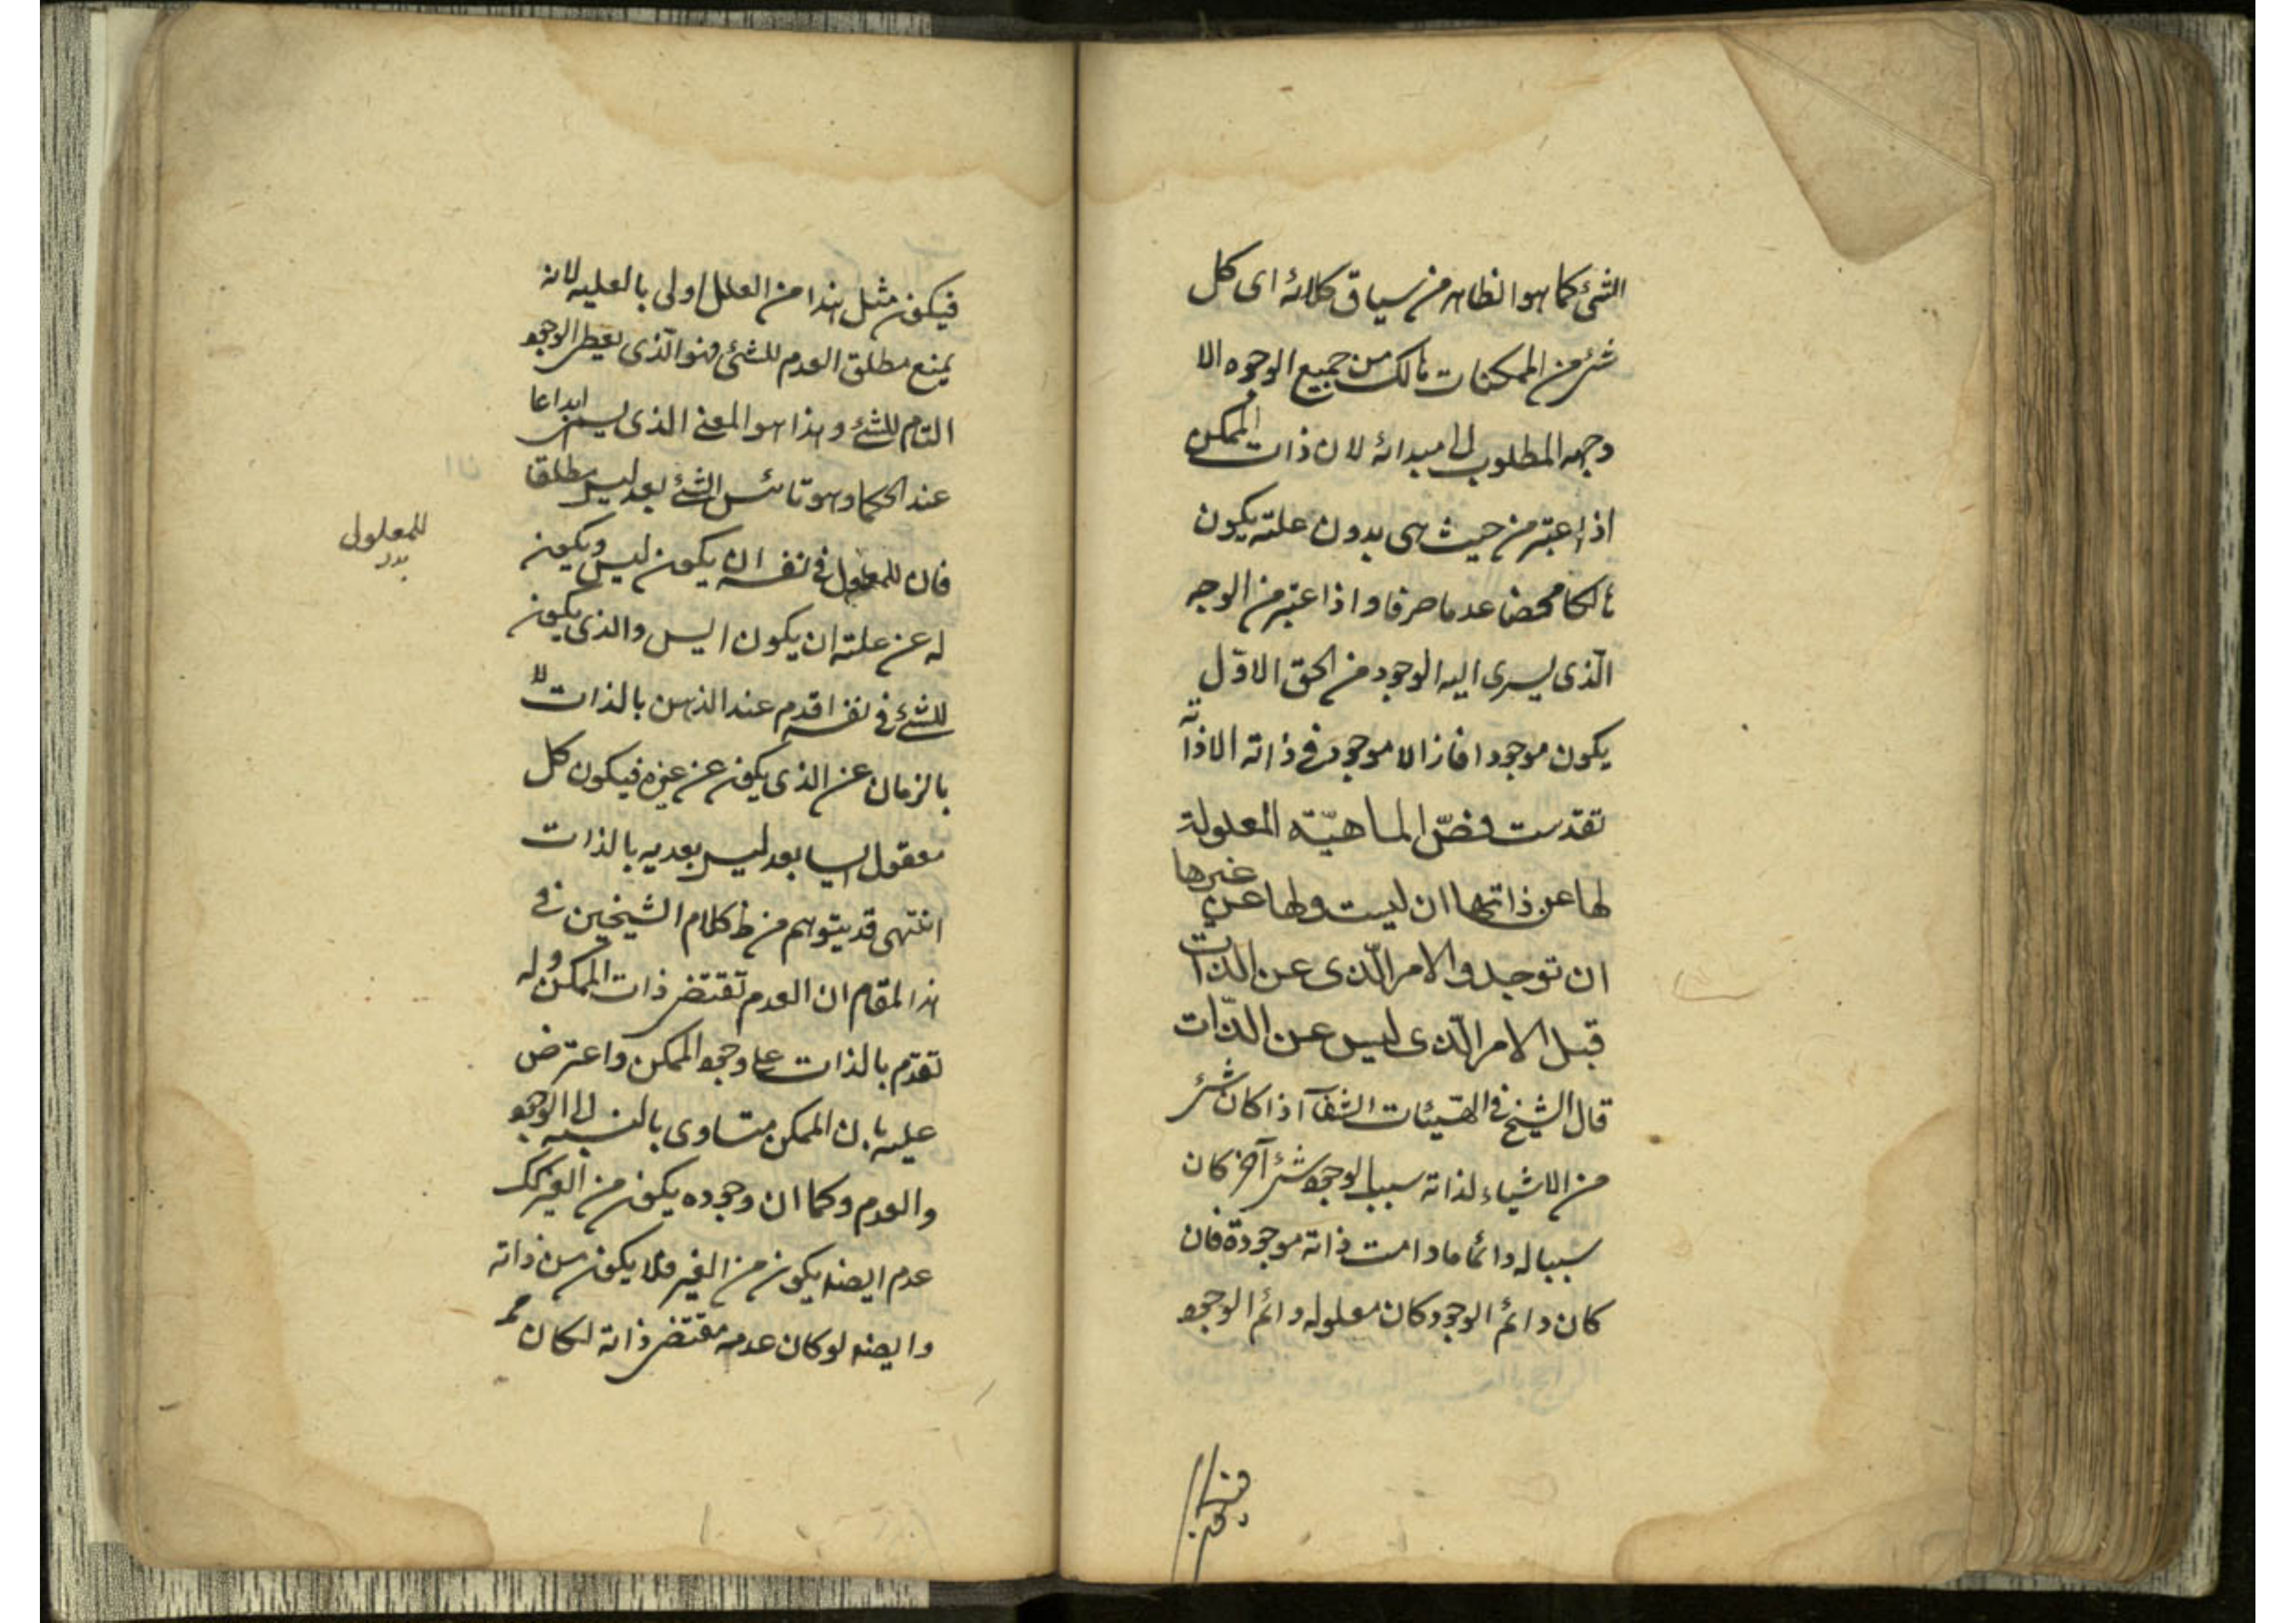 الشئ كما هو الظاهر من سياق كلامه اى كل
شئ من الممكنات هالك من جميع الوجوه الا
وجهه المطلوب الى مبدائه لان ذات الممكن
اذا اعتبر من حيث هى بدون علته يكون
هالكا محضا عدما صرفا واذا اعتبر من الوجه
الذى يسرى اليه الوجود من الحق الاول
يكون موجودا فاذا لا موجود فى ذاته الا ذاته
تقدست فصّ الماهيّة المعلولة
لها عن ذاتها ان ليست ولها عن غيرها
ان توجد والامر الّذى عن الذّات
قبل الامر الّذى ليس عن الذّات
قال الشيخ فى الهيئات الشفآ اذا كان شئ
من الاشياء لذاته سببا لوجود شئ آخر كان
سببا له دائما ما دامت ذاته موجودة فان
كان دائم الوجود كان معلوله دائم الوجود
فيكون
فيكون مثل هذا من العلل اولى بالعليه لانه
يمنع مطلق العدم للشئ فهو الّذى يعطى الوجود
التام للشئ وهذا هو المعنى الذى يسمى ابداعا
عند الحكما وهو تائيس الشئ بعد ليس مطلقا
فان للمعلول فى نفسه ان يكون ليس ويكون
للمعلول
بدل
له عن علته ان يكون ايس والذى يكون
للشئ فى نفسه اقدم عند الذهن بالذات لا
بالزمان عن الذى يكون عن غيره فيكون كل
معقول ايسا بعد ليس بعديه بالذات
انتهى قد يتوهم من ظ كلام الشيخين فى
هذا المقام ان العدم تقتضى ذات الممكن وله
تقدم بالذات على وجود الممكن واعترض
عليه بان الممكن متساوى بالنسبه الى الوجود
والعدم وكما ان وجوده يكون من الغير كك
عدم ايضه يكون من الغير فلا يكون من ذاته
وايضه لو كان عدمه مقتضى ذاته لكان